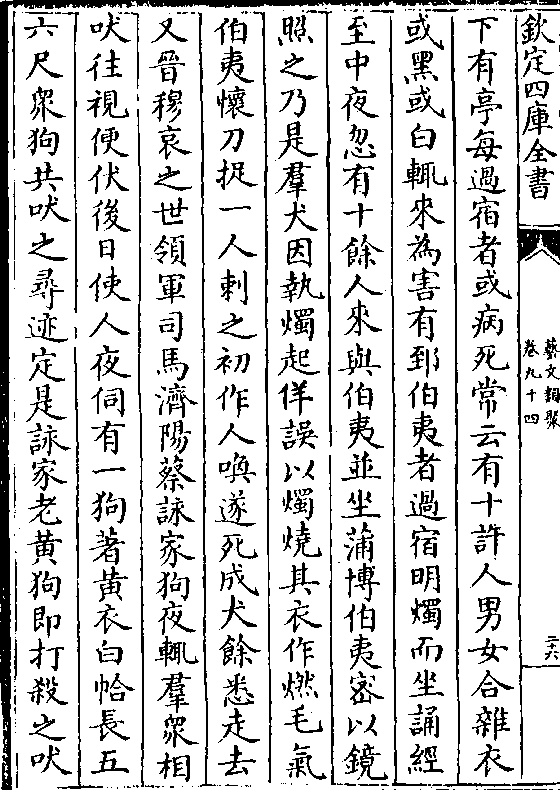 欽定四庫全書
藝文類聚
卷九十四
二十六
下有亭每過宿者或病死常云有十許人男女合雜衣
或黑或白輒來為害有郅伯夷者過宿明燭而坐誦經
至中夜忽有十餘人來與伯夷並坐蒲博伯夷密以鏡
照之乃是羣犬因執燭起佯誤以燭燒其衣作燃毛氣
伯夷懷刀捉一人刺之初作人喚遂死成犬餘悉走去
又晉穆哀之世領軍司馬濟陽蔡詠家狗夜輒羣衆相
吠往視便伏後日使人夜伺有一狗著黃衣白帢長五
六尺衆狗共吠之尋迹定是詠家老黃狗即打殺之吠